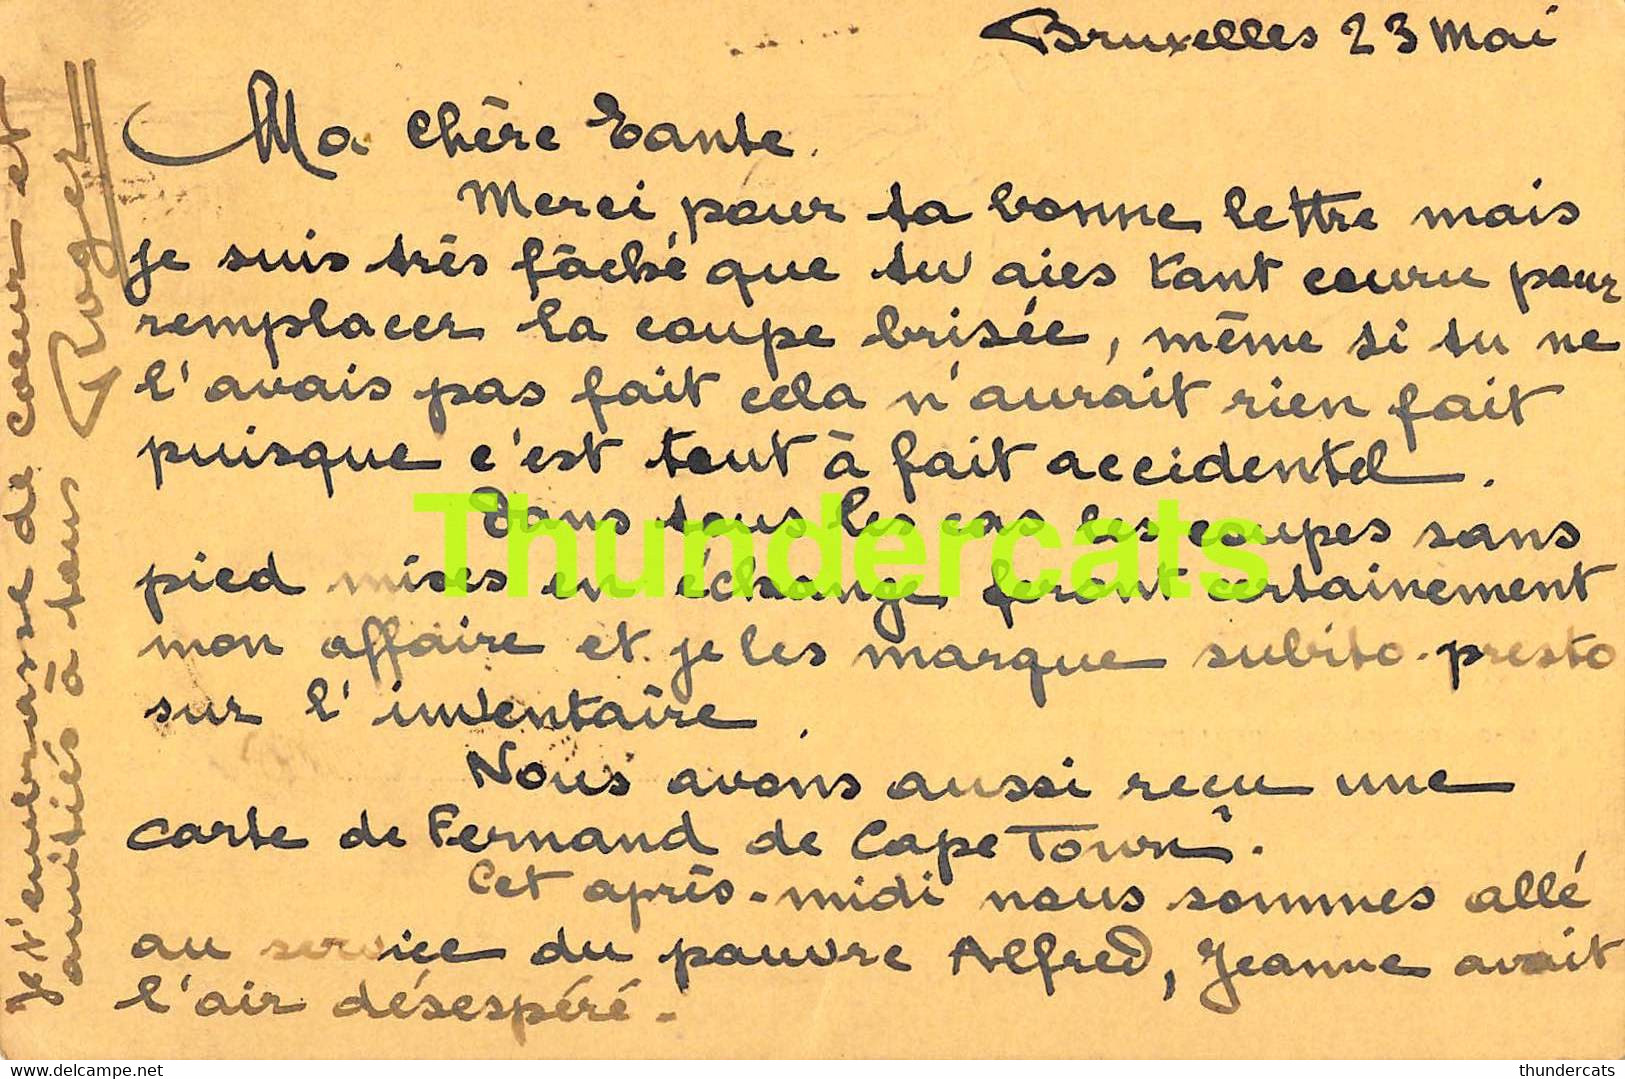 Bruxelles 23 Mai
Ma chère Tante.
Merci pour ta bonne lettre mais
je suis très fâché que tu aies tant couru pour
remplacer la coupe brisée, même si tu ne
l'avais pas fait cela n'aurait rien fait
puisque c'est tout à fait accidentel.
Dans tous les cas les coupes sans
pied mises en échange feront certainement
mon affaire et je les marque subito-presto
sur l'inventaire.
Nous avons aussi recu une
carte de Fernand de Cape Town.
Cet après-midi nous sommes allé
au service du pauvre Alfred, Jeanne avait
l'air désespéré.
Je t'embrasse de coeur et
amitiés à tous
Roger
Thundercats
www.delcampe.net
thundercats